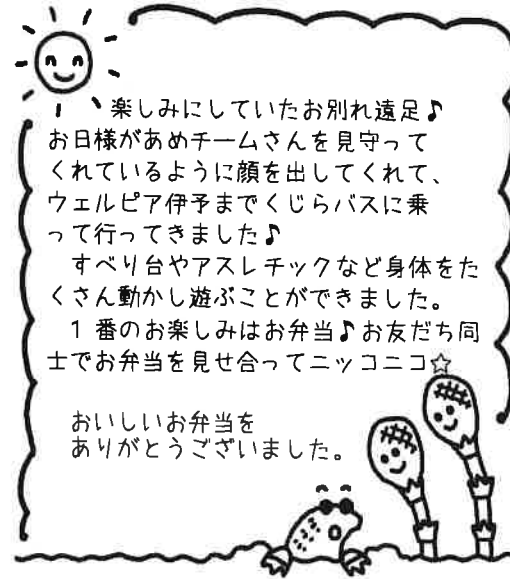 楽しみにしていたお別れ遠足♪
お日様があめチームさんを見守って
くれているように顔を出してくれて、
ウェルピア伊予までくじらバスに乗
って行ってきました♪
すべり台やアスレチックなど身体をた
くさん動かし遊ぶことができました。
1番のお楽しみはお弁当♪お友だち同
士でお弁当を見せ合ってニッコニコ☆
おいしいお弁当を
ありがとうございました。